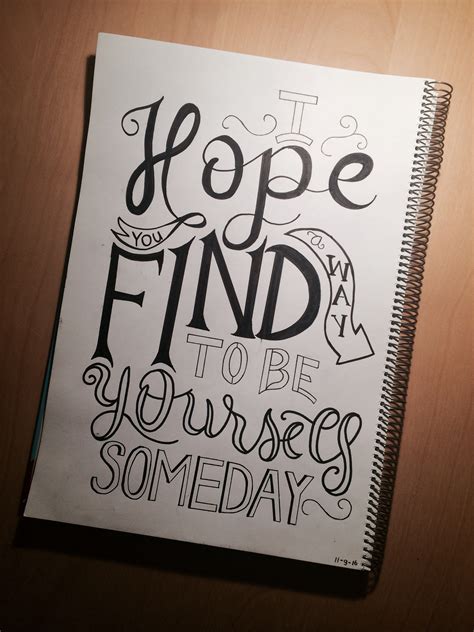 I
Hope
YOU
FIND
a WAY
TO BE
yourself
SOMEDAY
11-9-16